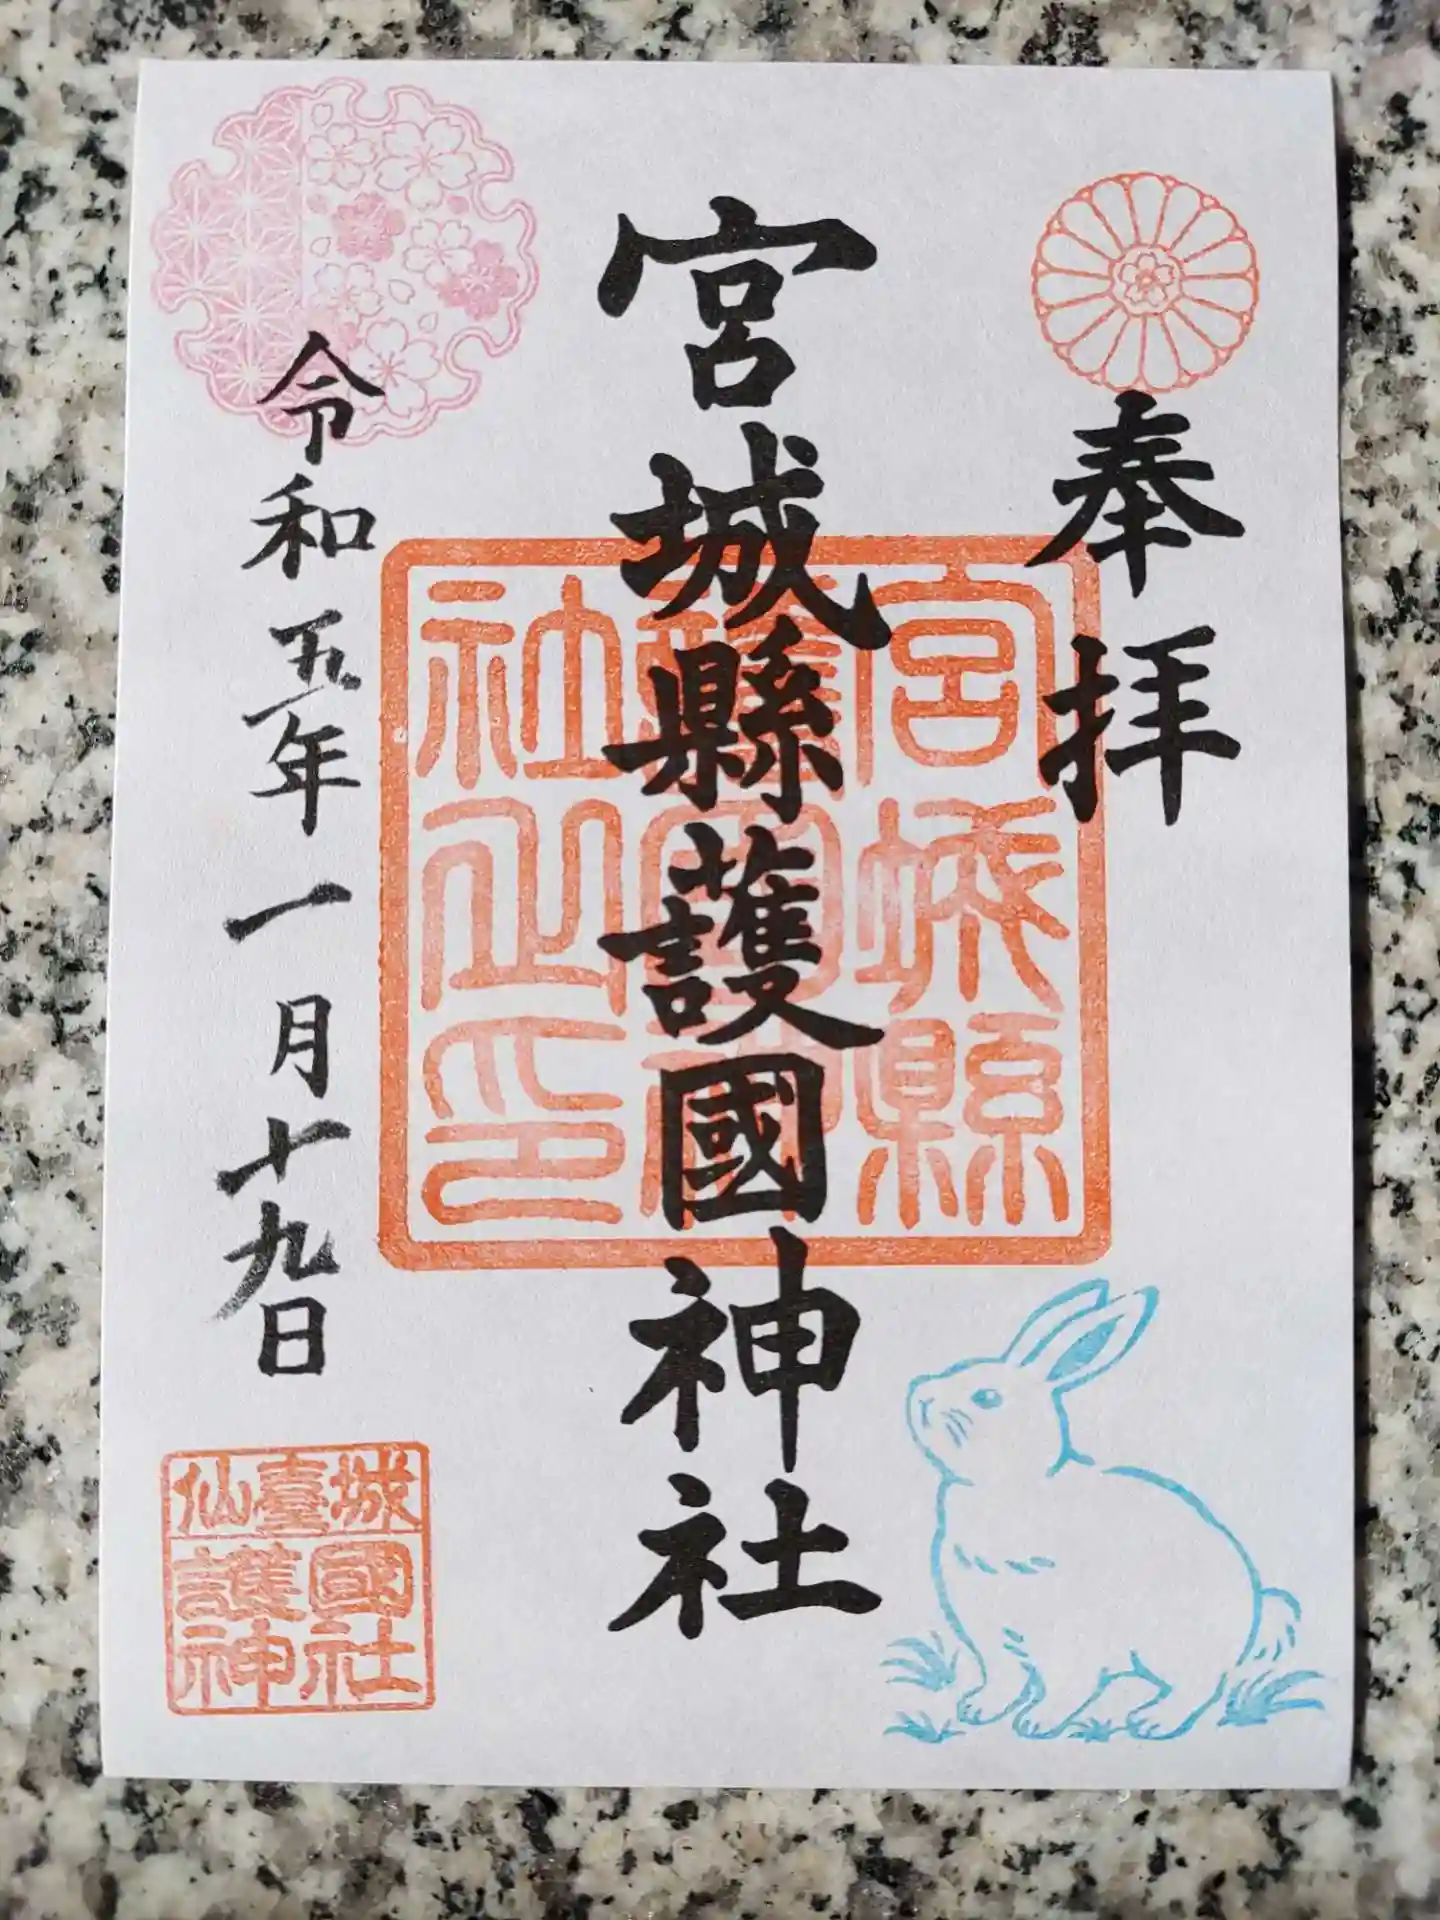 奉拝
宮城縣護國神社
宮城縣
護國神
社之印
令和五年一月十九日
仙臺城
護國
神社